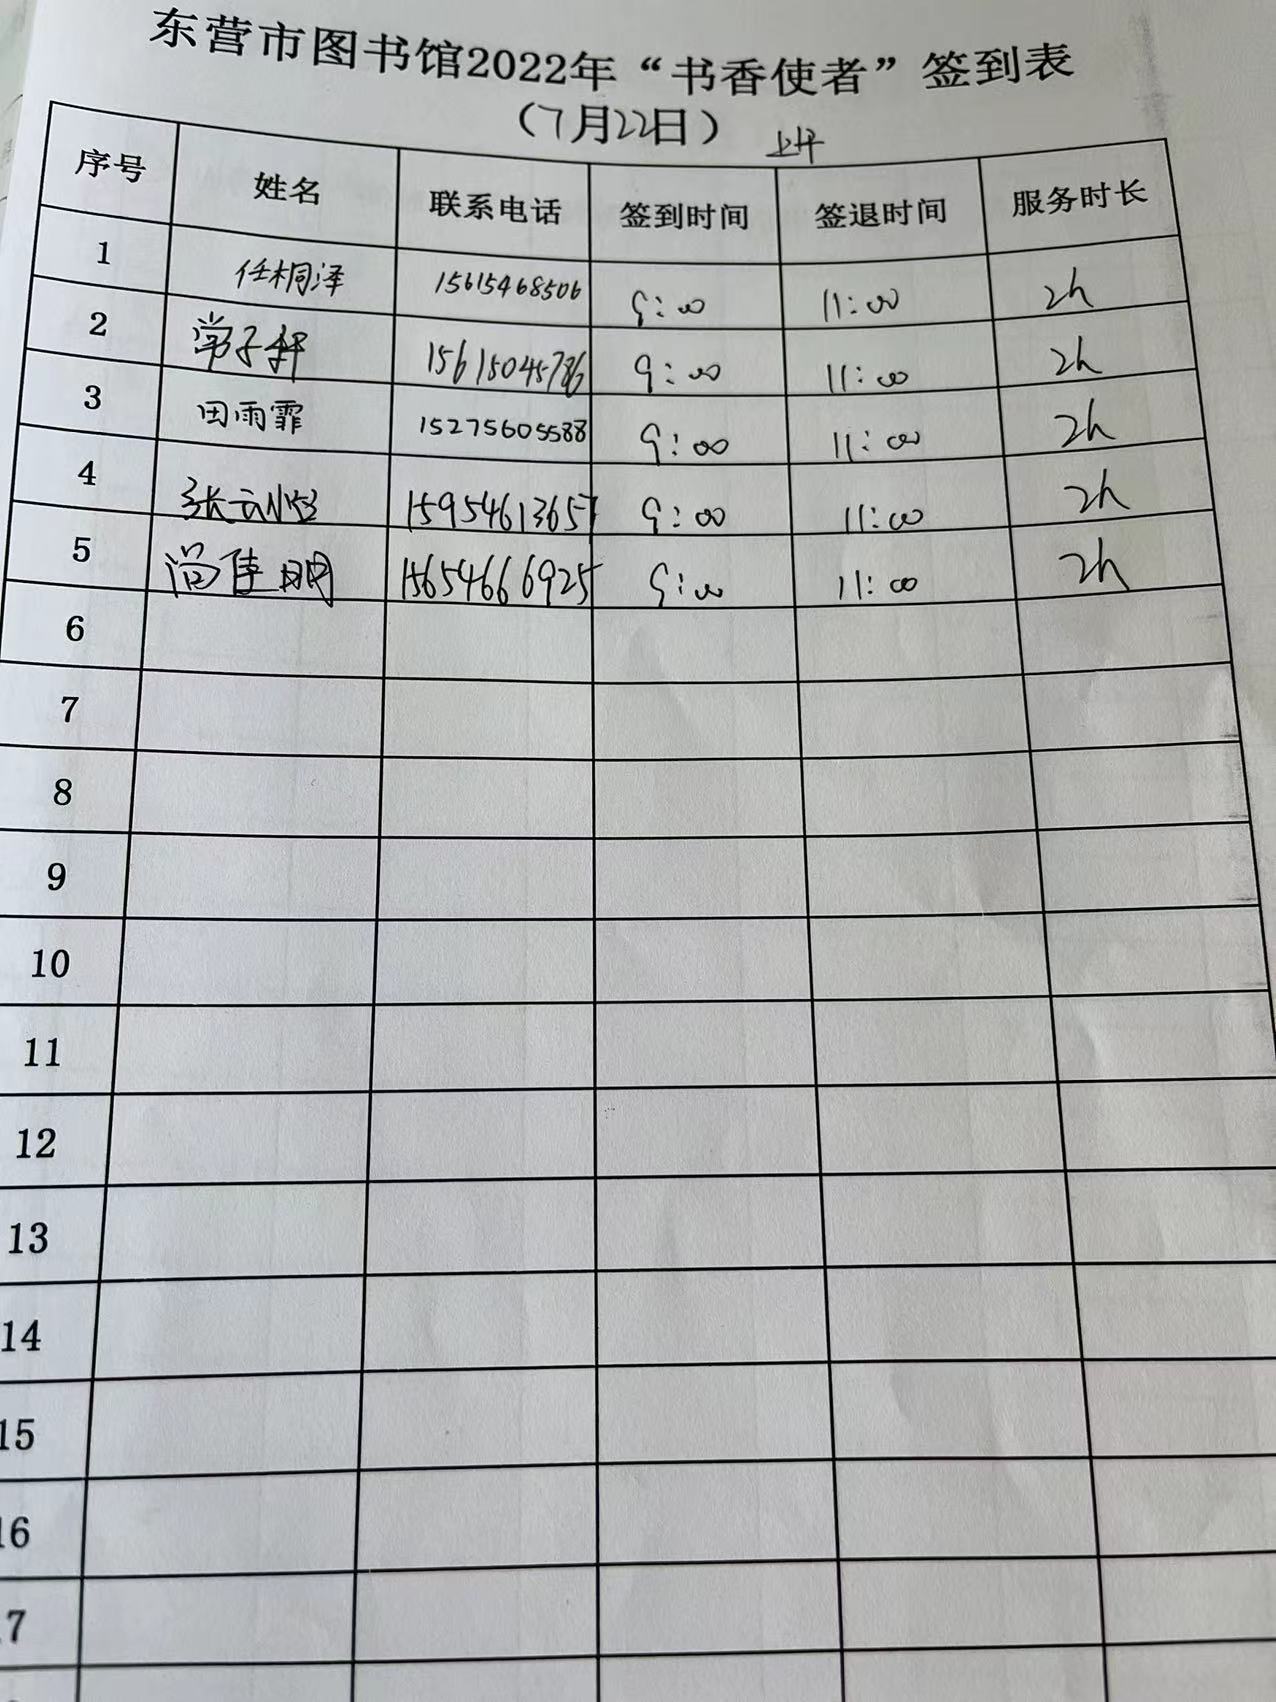 东营市图书馆2022年“书香使者”签到表
（7月22日） 上午
序号 姓名 联系电话 签到时间 签退时间 服务时长
1 任桐泽 15615468506 9:00 11:00 2h
2 常子轩 15615045786 9:00 11:00 2h
3 田雨霏 15275605588 9:00 11:00 2h
4 15954613657 9:00 11:00 2h
5 尚佳明 15654666925 9:00 11:00 2h
6
7
8
9
10
11
12
13
14
15
16
7